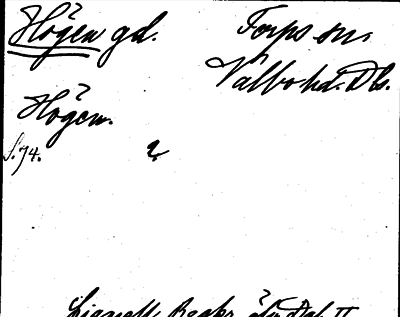 Högen gd. Torps sn.
Valbo hd. Dls.
Högen.
S. 74. 2
Lignell Beskr. öfv. Dal II